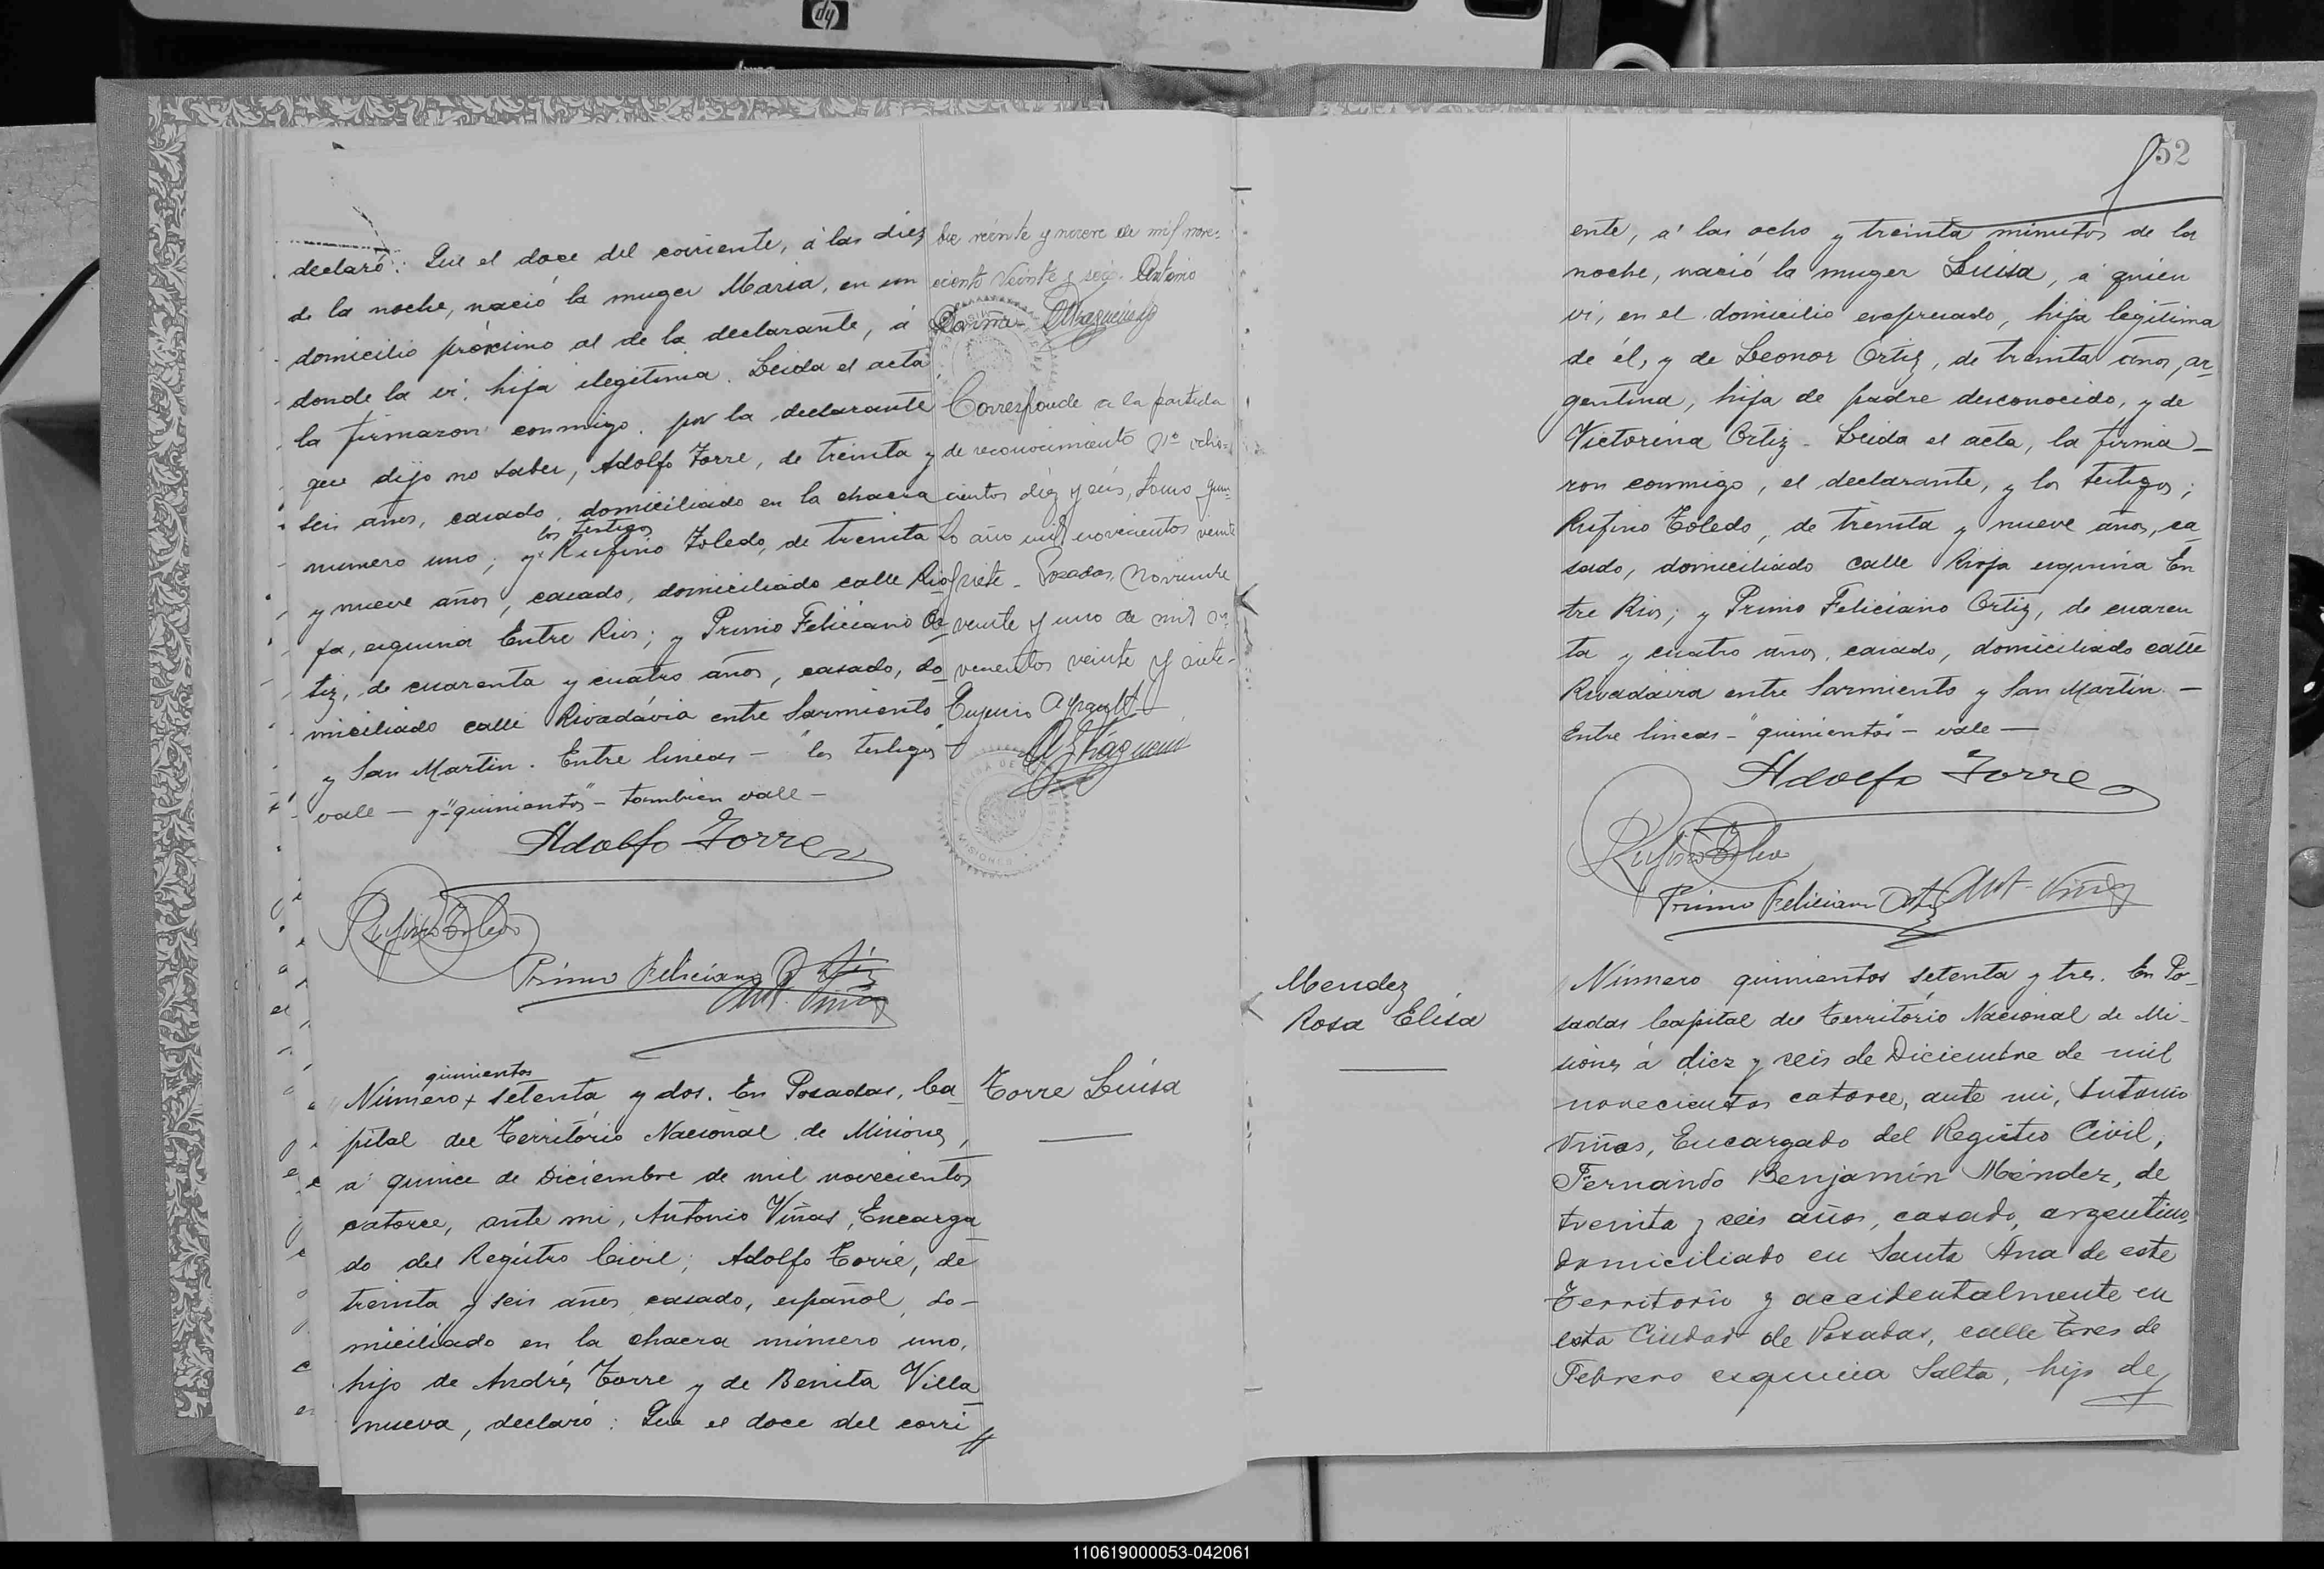 hp
declaró: Que el doce del corriente, á las diez
de la noche, nació la muger Maria, en un
domicilio próximo al de la declarante, á
donde la vi, hija ilegitima. Leida el acta
la firmaron conmigo, por la declarante
que dijo no saber, Adolfo Torre, de treinta y
seis años, casado, domiciliado en la chacra
los testigos
numero uno; y Rufino Toledo, de treinta
y nueve años, casado, domiciliado calle Rio
ja, esquina Entre Rios; y Primo Feliciano Or
tiz, de cuarenta y cuatro años, casado, do
miciliado calle Rivadávia entre Sarmiento
y San Martin. Entre lineas - "los testigos"
vale - y "quinientos" - tambien vale -
Adolfo Torre
Rufino Toledo
Primo Feliciano Ortiz
Ant. Viñas
bre veinte y nueve de mil nove-
ciento veinte y seis. Antonio
Corresponde a la partida
de reconocimiento Nº ocho-
cientos diez y seis, tomo quin
to año mil novecientos veinte
siete - Posadas, Noviembre
veinte y uno de mil no-
vecientos veinte y siete-
Eugenio
quinientos
Número x setenta y dos. En Posadas, Ca
pital del Territorio Nacional de Misiones,
á quince de Diciembre de mil novecientos
catorce, ante mi, Antonio Viñas, Encarga
do del Registro Civil; Adolfo Torre, de
treinta y seis años, casado, español, do-
miciliado en la chacra número uno,
hijo de Andrés Torre y de Benita Villa
nueva, declaró: Que el doce del corri
Torre Luisa
52
ente, á las ocho y treinta minutos de la
noche, nació la muger Luisa, á quien
vi, en el domicilio expresado, hija legitima
de él, y de Leonor Ortiz, de treinta años, ar
gentina, hija de padre desconocido, y de
Victorina Ortiz - Leida el acta, la firma-
ron conmigo, el declarante, y los testigos;
Rufino Toledo, de treinta y nueve años, ca
sado, domiciliado calle Rioja esquina En
tre Rios; y Primo Feliciano Ortiz, de cuaren
ta y cuatro años, casado, domiciliado calle
Rivadavia entre Sarmiento y San Martin. -
Entre lineas - "quinientos" - vale -
Adolfo Torre
Rufino Toledo
Primo Feliciano Ortiz Ant. Viñas
Mendez
Rosa Elisa
Número quinientos setenta y tres. En Po-
sadas Capital del Territorio Nacional de Mi-
siones á diez y seis de Diciembre de mil
novecientos catorce, ante mi, Antonio
Viñas, Encargado del Registro Civil,
Fernando Benjamín Méndez, de
treinta y seis años, casado, argentino,
domiciliado en Santa Ana de este
Territorio y accidentalmente en
esta Ciudad de Posadas, calle Tres de
Febrero esquina Salta, hijo de
110619000053-042061